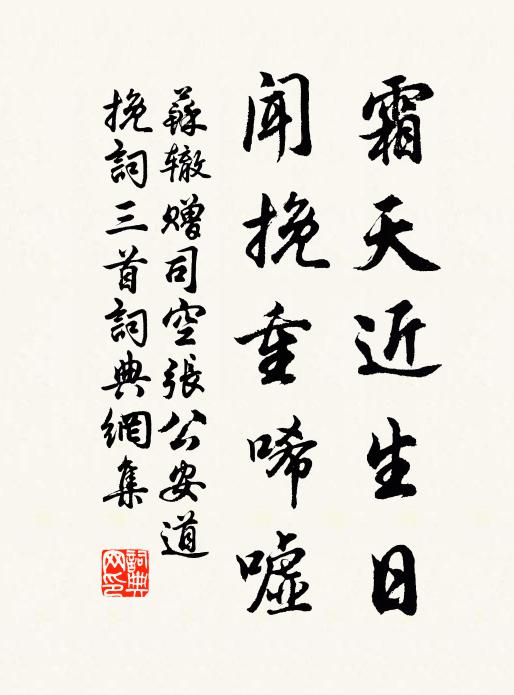 霜天近生日
聞挽重唏噓
蘇轍贈司空張公安道
挽詞三首詞典網集
詞典
网印